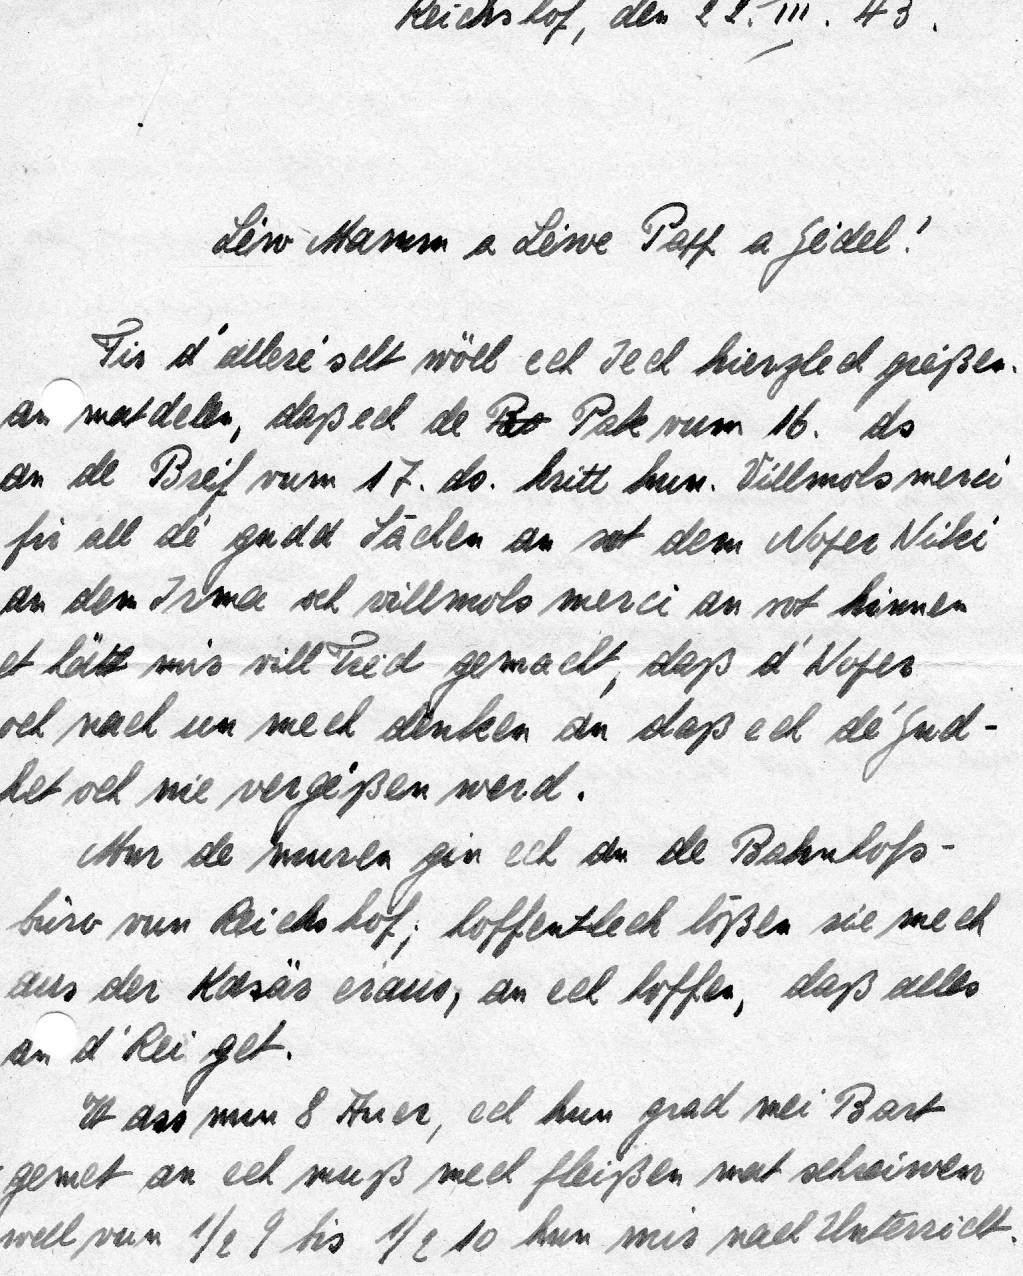 Reichshof, den 22. III. 43.
Léiw Mamm a Léiwe Papp a Jédel!
Fir d'alleréischt wöll ech Iech hierzlech gréißen.
an matdelen, daß ech de Pak vum 16. ds
an de Bréif vum 17. ds. kritt hun. Villmols merci
fir all dé gudd Sächen an sot dem Noper Niki
an dem Irma och villmols merci an sot hinnen
et hätt mir vill Fréd gemacht, daß d'Noper
och nach un mech denken an daß ech dé Gud-
het och nie vergéßen werd.
Mur de muren gin ech an de Bahnhofs-
büro vun Reichshof, hoffentlech lößen sie mech
aus der Kasär eraus, an ech hoffen, daß alles
an d'Rei get.
Et ass nun 8 Auer, ech hun grad mei Bart
gemet an ech muß mech fleißen mat schreiwen
well vun 1/2 9 bis 1/2 10 hun mir nach Unterricht.